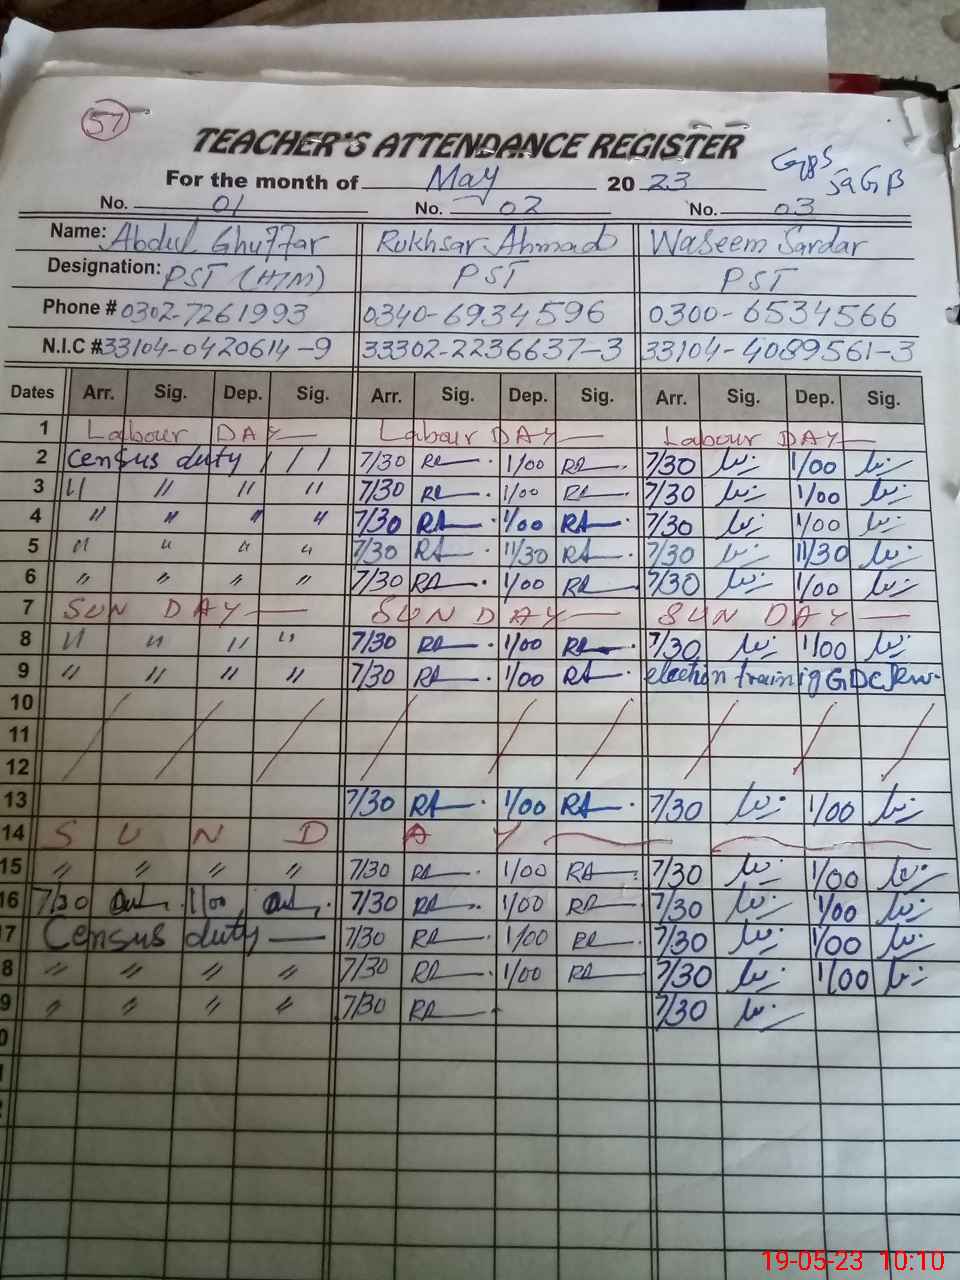 57
TEACHER'S ATTENDANCE REGISTER
For the month of May 2023
No. 01 No. 02 No. 03
Name: Abdul Ghuffar Rukhsar Ahmad Waseem Sardar
Designation: PST (H/M) PST PST
Phone # 0302-7261993 0340-6934596 0300-6534566
N.I.C # 33104-0420614-9 33302-2236637-3 33104-4089561-3
Dates Arr. Sig. Dep. Sig. Arr. Sig. Dep. Sig. Arr. Sig. Dep. Sig.
1 Labour DAY Labour DAY Labour DAY
2 Census duty / / / 7/30 RA 1/00 RA 7/30 1/00
3 " " " " 7/30 RA 1/00 RA 7/30 1/00
4 " " " " 7/30 RA 1/00 RA 7/30 1/00
5 " " " " 7/30 RA 11/30 RA 7/30 11/30
6 " " " " 7/30 RA 1/00 RA 7/30 1/00
7 SUN DAY SUNDAY SUN DAY
8 " " " " 7/30 RA 1/00 RA 7/30 1/00
9 " " " " 7/30 RA 1/00 RA election training GDC
10
11
12
13 7/30 RA 1/00 RA 7/30 1/00
14 SUNDAY
15 " " " " 7/30 RA 1/00 RA 7/30 1/00
16 7/30 1/00 7/30 RA 1/00 RA 7/30 1/00
7 Census duty 7/30 RA 1/00 RA 7/30 1/00
8 " " " " 7/30 RA 1/00 RA 7/30 1/00
9 " " " " 7/30 RA 7/30
0
19-05-23 10:10